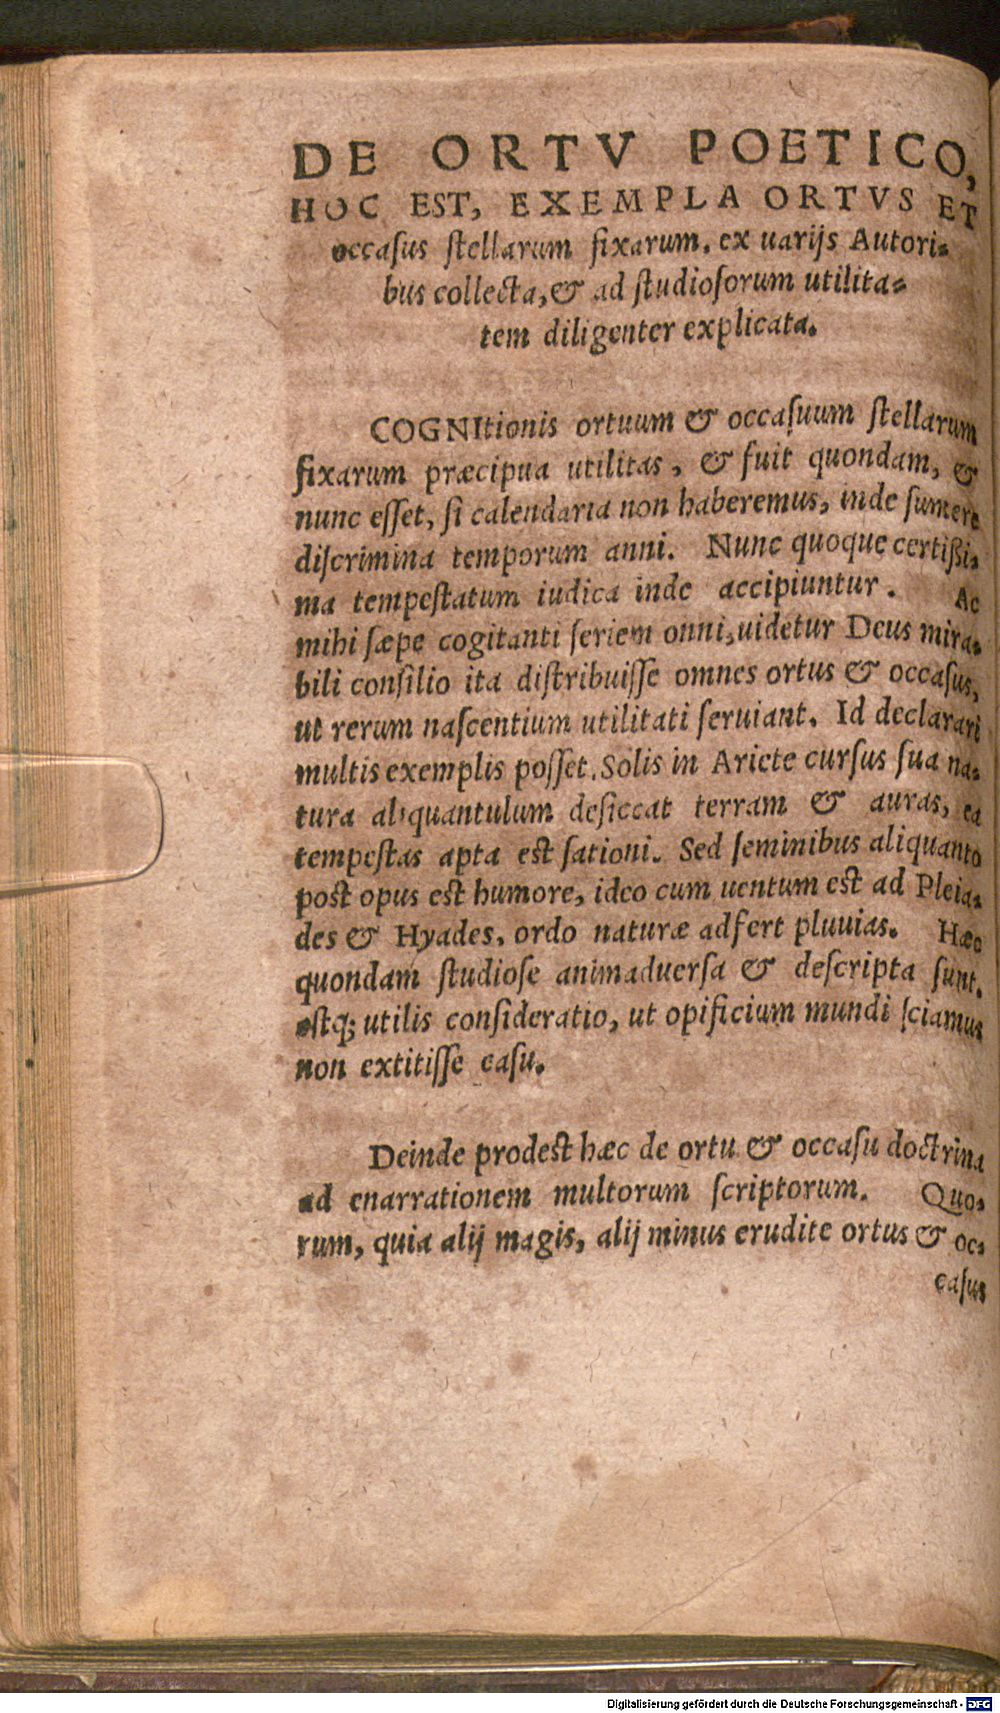 DE ORTV POETICO,
HOC EST, EXEMPLA ORTVS ET
occaſus ſtellarum fixarum. ex uarijs Autori-
bus collecta, & ad ſtudioſorum utilita-
tem diligenter explicata.
COGNItionis ortuum & occaſuum ſtellarum
fixarum præcipua utilitas, & fuit quondam, &
nunc eſſet, ſi calendaria non haberemus, inde ſumere
diſcrimina temporum anni. Nunc quoque certißi-
ma tempeſtatum iudica inde accipiuntur. Ac
mihi ſæpe cogitanti ſeriem onni, uidetur Deus mira-
bili conſilio ita diſtribuiſſe omnes ortus & occaſus,
ut rerum naſcentium utilitati ſeruiant. Id declarari
multis exemplis poſſet. Solis in Ariete curſus ſua na-
tura aliquantulum deſiccat terram & auras, ea
tempeſtas apta eſt ſationi. Sed ſeminibus aliquanto
poſt opus eſt humore, ideo cum uentum eſt ad Pleia-
des & Hyades, ordo naturæ adfert pluuias. Hæc
quondam ſtudioſe animaduerſa & deſcripta ſunt.
eſtq; utilis conſideratio, ut opificium mundi ſciamus
non extitiſſe caſu.
Deinde prodeſt hæc de ortu & occaſu doctrina
ad enarrationem multorum ſcriptorum. Quo-
rum, quia alij magis, alij minus erudite ortus & oc-
caſus
Digitalisierung gefördert durch die Deutsche Forschungsgemeinschaft - DFG